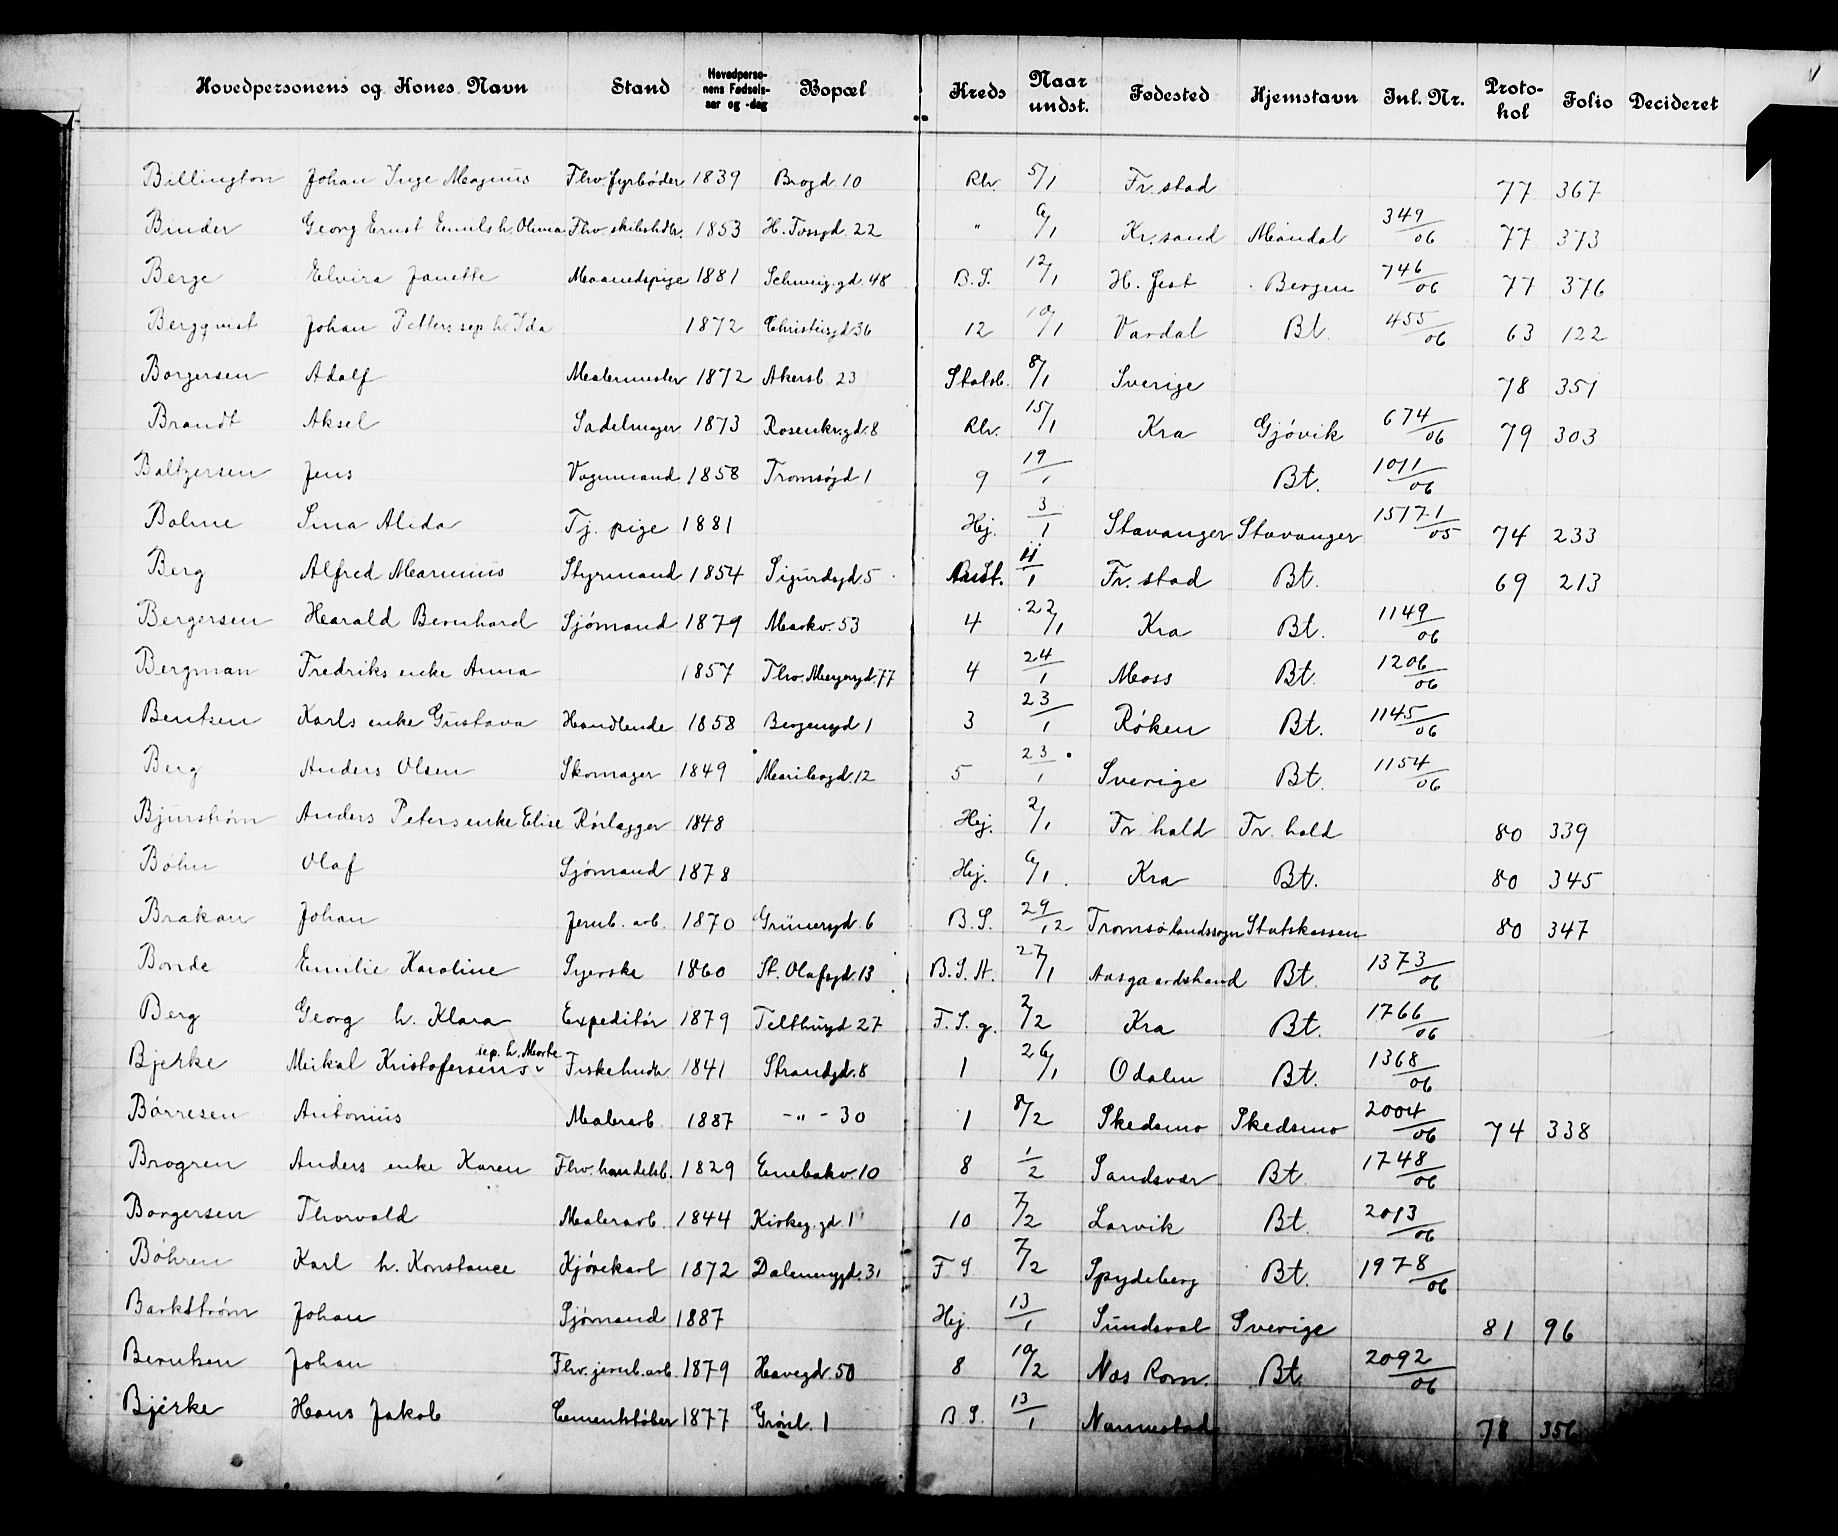 Hovedpersonens og Kones Navn Stand Hovedpersonens Fødselsaar og -dag Bopæl Kreds Naar undst. Fødested Hjemstavn Inl. Nr. Protohol Folio Decideret
Billington Johan Inge Magnus Fhv. fyrbøder 1839 Brogd. 10 Rh. 5/1 Fr. stad 77 367
Binder Georg Ernst Emils h. Olivia Fhv. skibshdlr. 1853 H. Tossgd. 22 " 6/1 Kr. sand Mandal 349/06 77 373
Berge Elvira Janette Maanedspige 1881 Schweig. gd. 48 B. S. 12/1 H. fest Bergen 746/06 77 376
Bergqvist Johan Petters sep. h. Ida 1872 Christiesgd. 36 12 10/1 Vardal Bt. 455/06 63 122
Borgersen Adolf Malermester 1872 Akersb. 23 Statsb. 8/1 Sverige 78 351
Brandt Aksel Sadelmager 1873 Rosenkr. gd. 8 Rh. 15/1 Kra Gjøvik 674/06 79 303
Baltzersen Jens Vognmand 1858 Tromsøgd 1 9 19/1 Bt. 1011/06
Bolme Sina Alida Tj. pige 1881 Hej. 3/1 Stavanger Stavanger 15171/05 74 233
Berg Alfred Marinius Styrmand 1854 Sigurdsgd. 5 11/1 Fr. stad Bt. 69 213
Bergersen Harald Bernhard Sjømand 1879 Markv. 53 4 22/1 Kra Bt. 1149/06
Bergman Fredriks enke Anna 1857 Thv. Meyersgd. 77 4 24/1 Moss Bt. 1206/06
Bentsen Karls enke Gustava Handlende 1858 Bergensgd 1 3 23/1 Røken Bt. 1145/06
Berg Anders Olsen Skomager 1849 Maribogd. 12 5 23/1 Sverige Bt. 1154/06
Bjurstrøm Anders Peters enke Elise Rørlægger 1848 Hej. 2/1 Fr. hald Fr. hald 80 339
Bøhn Olaf Sjømand 1878 Hej. 6/1 Kra Bt. 80 345
Brakan Johan Jernb. arb. 1870 Grünersgd. 6 B. S. 29/12 Tromsø landssogn Statskassen 80 347
Bonde Emilie Karoline Syerske 1860 St. Olafsgd. 13 B. S. H. 27/1 Aasgaardstrand Bt. 1373/06
Berg Georg h. Klara Expeditør 1879 Telthusgd 27 F. S. g. 2/2 Kra Bt. 1766/06
Bjerke Mikal Kristofersens sep. h. Marte Fiskehndlr 1841 Strandgd. 8 1 26/1 Odalen Bt. 1368/06
Børresen Antonius Malerarb. 1887 - " - 30 1 8/2 Skedsmo Skedsmo 2004/06 74 338
Brogren Anders enke Karen Fhv. handelsb. 1829 Enebakv. 10 8 1/2 Sandsvær Bt. 1748/06
Borgersen Thorvald Malerarb. 1844 Kirkeg. gd. 1 10 7/2 Larvik Bt. 2013/06
Bøhren Karl h. Konstance Kjørekarl 1872 Dalenengd. 31 F. S. 7/2 Spydeberg Bt. 1978/06
Barkstrøm Johan Sjømand 1887 Hej. 13/1 Sundsval Sverige 81 96
Berntsen Johan Fhv. jernb. arb. 1879 Havegd. 50 8 10/2 Næs Rom. Bt. 2092/06
Bjerke Hans Jakob Cementstøber 1877 Grønl. 1 B. S. 13/1 Nannestad 78 356